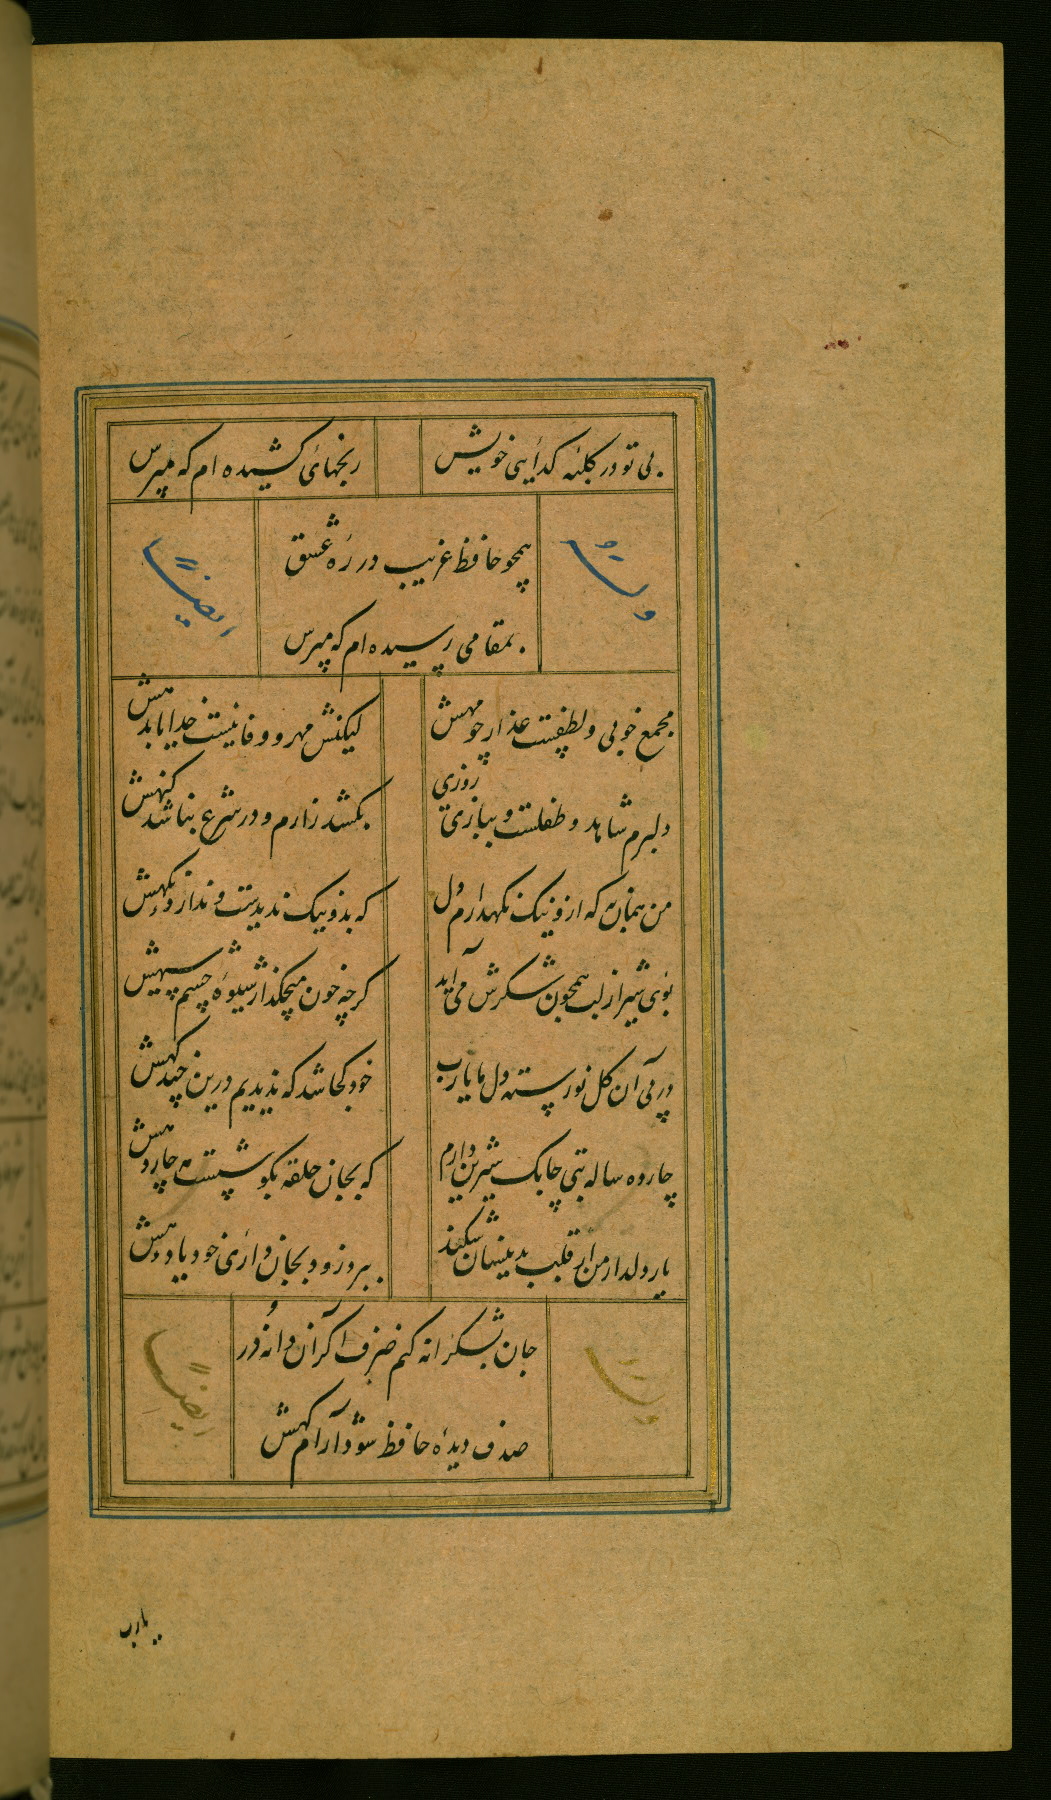 بی تو در کلبه گدایی خویش
رنجهائی کشیده ام که مپرس
همچو حافظ غریب در ره عشق
بمقامی رسیده ام که مپرس
وله
ایضاً
مجمع خوبی و لطفست عذار چو مهش
لیکنش مهر و وفا نیست خدایا بدهش
دلبرم شاهد و طفلست و ببازی روزی
بکشد زارم و در شرع نباشد گنهش
من همان به که ازو نیک نگهدارم دل
که بد و نیک ندیدست و ندارد نگهش
بوی شیر از لب همچون شکرش می آید
گرچه خون میچکد از شیوه چشم سیهش
در پی آن گل نورسته دل ما یا رب
خود کجا شد که ندیدیم درین چند گهش
چارده ساله بتی چابک شیرین دارم
که بجان حلقه بگوشست مه چاردهش
یار دلدار من ار قلب بدینسان شکند
ببرد زود بجانداری خود پادشهش
جان بشکرانه کنم صرف اگر آن دانه در
صدف دیده حافظ شود آرامگهش
وله
ایضاً
یارب